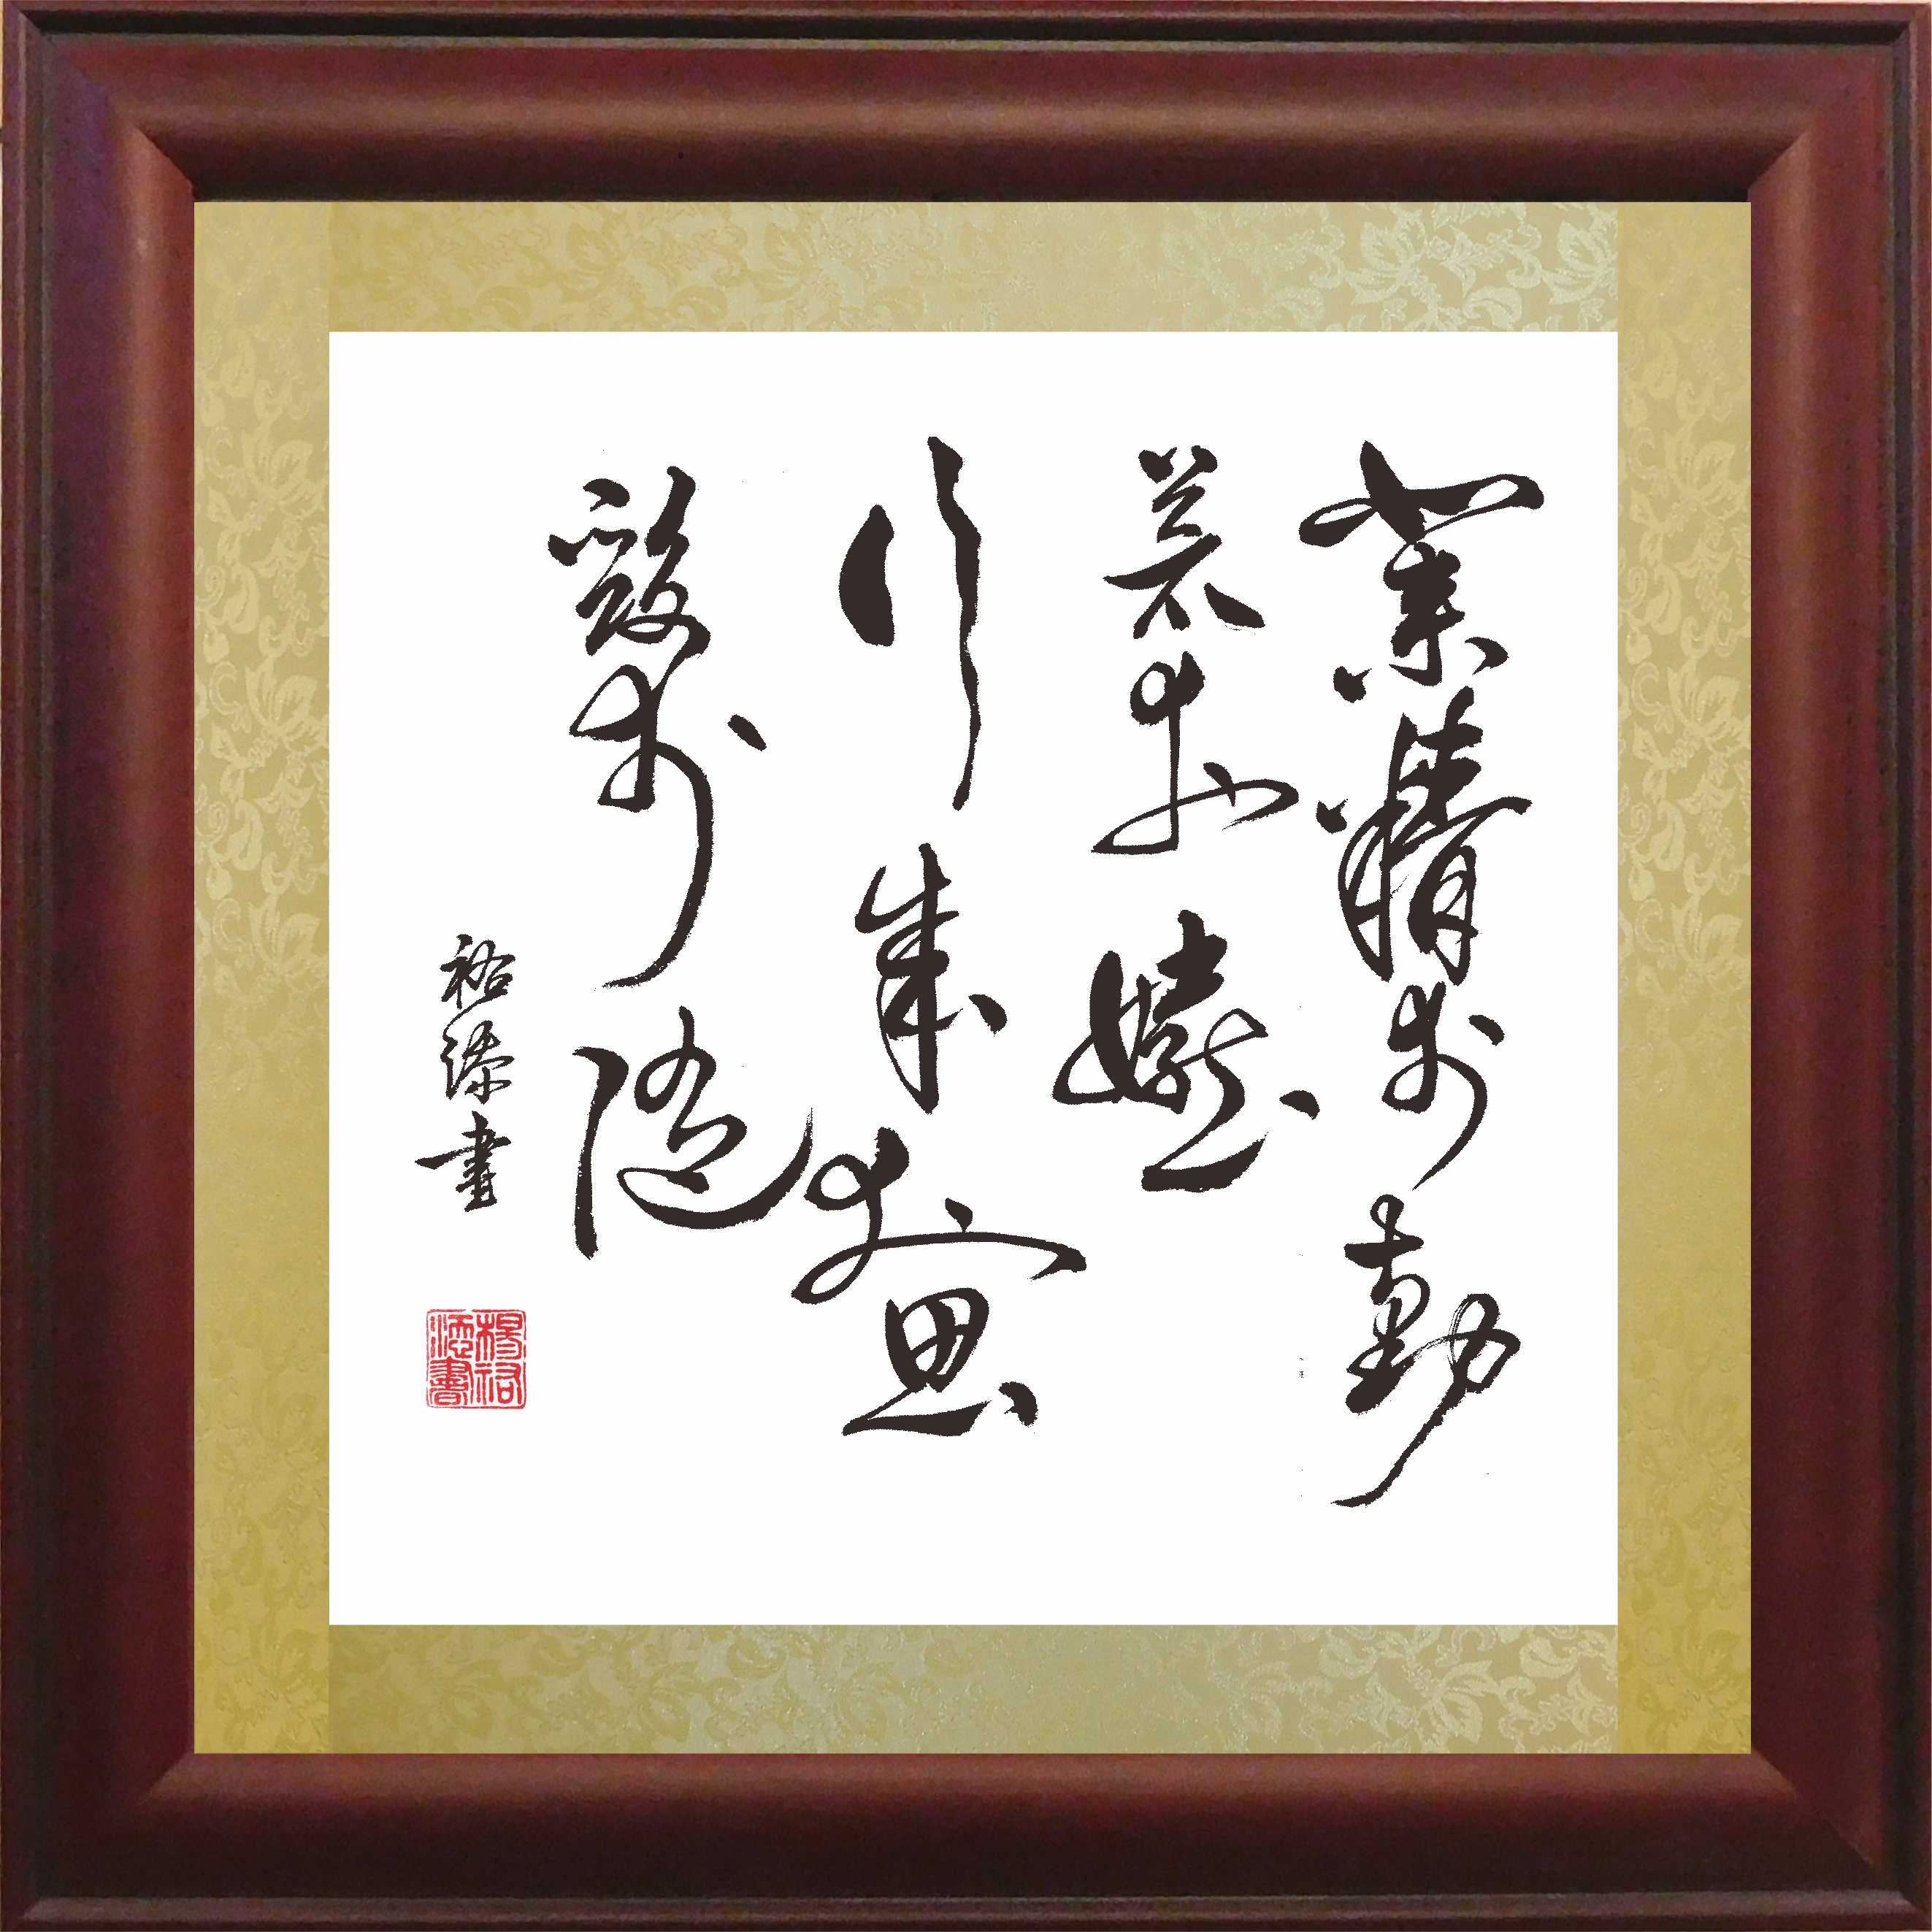 業精於勤
荒於嬉
行成於思
毀於隨
裕添書
楊裕添書